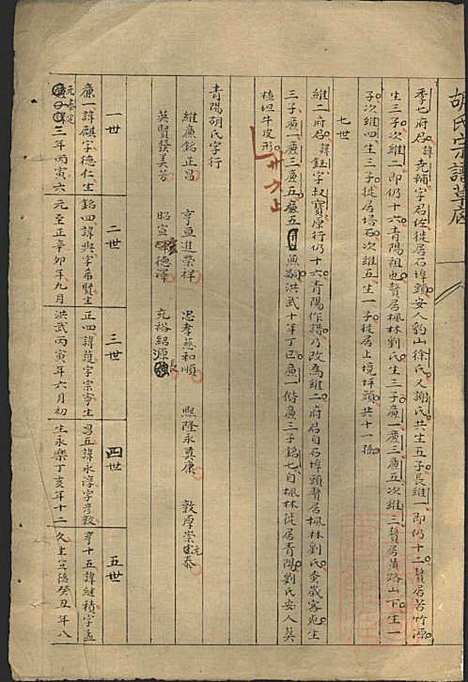 胡氏宗譜草底
季七府君諱堯輔字君佐徙居石埠頭安人豹山徐氏又謝氏共生五子長維一即仍十二贅居苦竹源
生三子次維二即仍十六青陽祖也贅居楓林劉氏生三子廉一廉三廉五次維三贅居黃路山下生一
子次維四生三子徙居塔石次維五生一子徙居上境坪頭共十一孫
七世
維二府君諱鈺字叔寶原行仍十六青陽作譜乃改為維二府君自石埠頭贅居楓林劉氏
三子廉一廉三廉五廉五洪武十年丁巳廉一偕廉三子銘七自楓林徙居青陽劉氏安人葬
植坦牛皮形
青陽胡氏字行
維廉銘正昌 亨重進榮祥 忠孝慈和順 熙隆永真康 敦厚崇元泰
英賢發美芳 昭宣德澤 克裕紹源長
一世 二世 三世 四世 五世
廉一諱麒字德仁生 銘四諱興字希賢生 正四諱茂字宗寧生 昌五諱永淳字彥敦 亨十五諱繼積字孟
元泰定三年丙寅六 元至正辛卯年九月 洪武丙寅年六月初 生永樂丁亥年十二 久生宣德癸丑年八